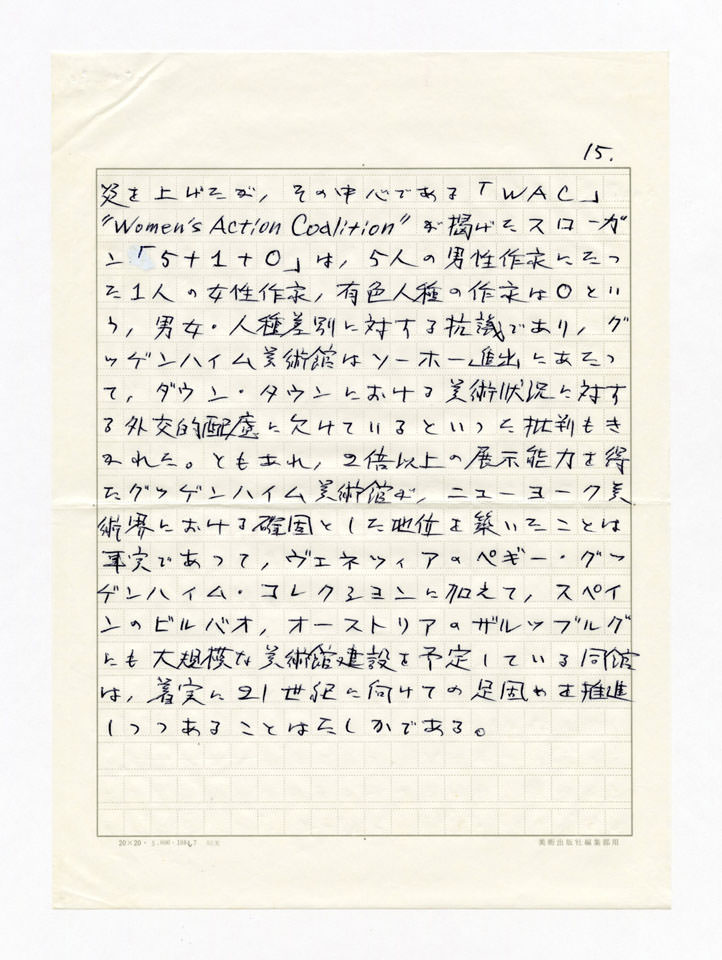 15.
炎を上げたが，その中心である「WAC」
"Women's Action Coalition"が掲げたスローガ
ン「5+1+0」は，5人の男性作家にたっ
た1人の女性作家，有色人種の作家は0とい
う，男女・人種差別に対する抗議であり，グ
ッゲンハイム美術館はソーホー進出にあたっ
て，ダウン・タウンにおける美術状況に対す
る外交的配慮に欠けているといった批判もき
かれた。ともあれ，2倍以上の展示能力を得
たグッゲンハイム美術館が，ニューヨーク美
術界における確固とした地位を築いたことは
事実であって，ヴェネツィアのペギー・グッ
ゲンハイム・コレクションに加えて，スペイ
ンのビルバオ，オーストリアのザルツブルグ
にも大規模な美術館建設を予定している同館
は，着実に21世紀に向けての足固めを推進
しつつあることはたしかである。
20×20・
美術出版社編集部用